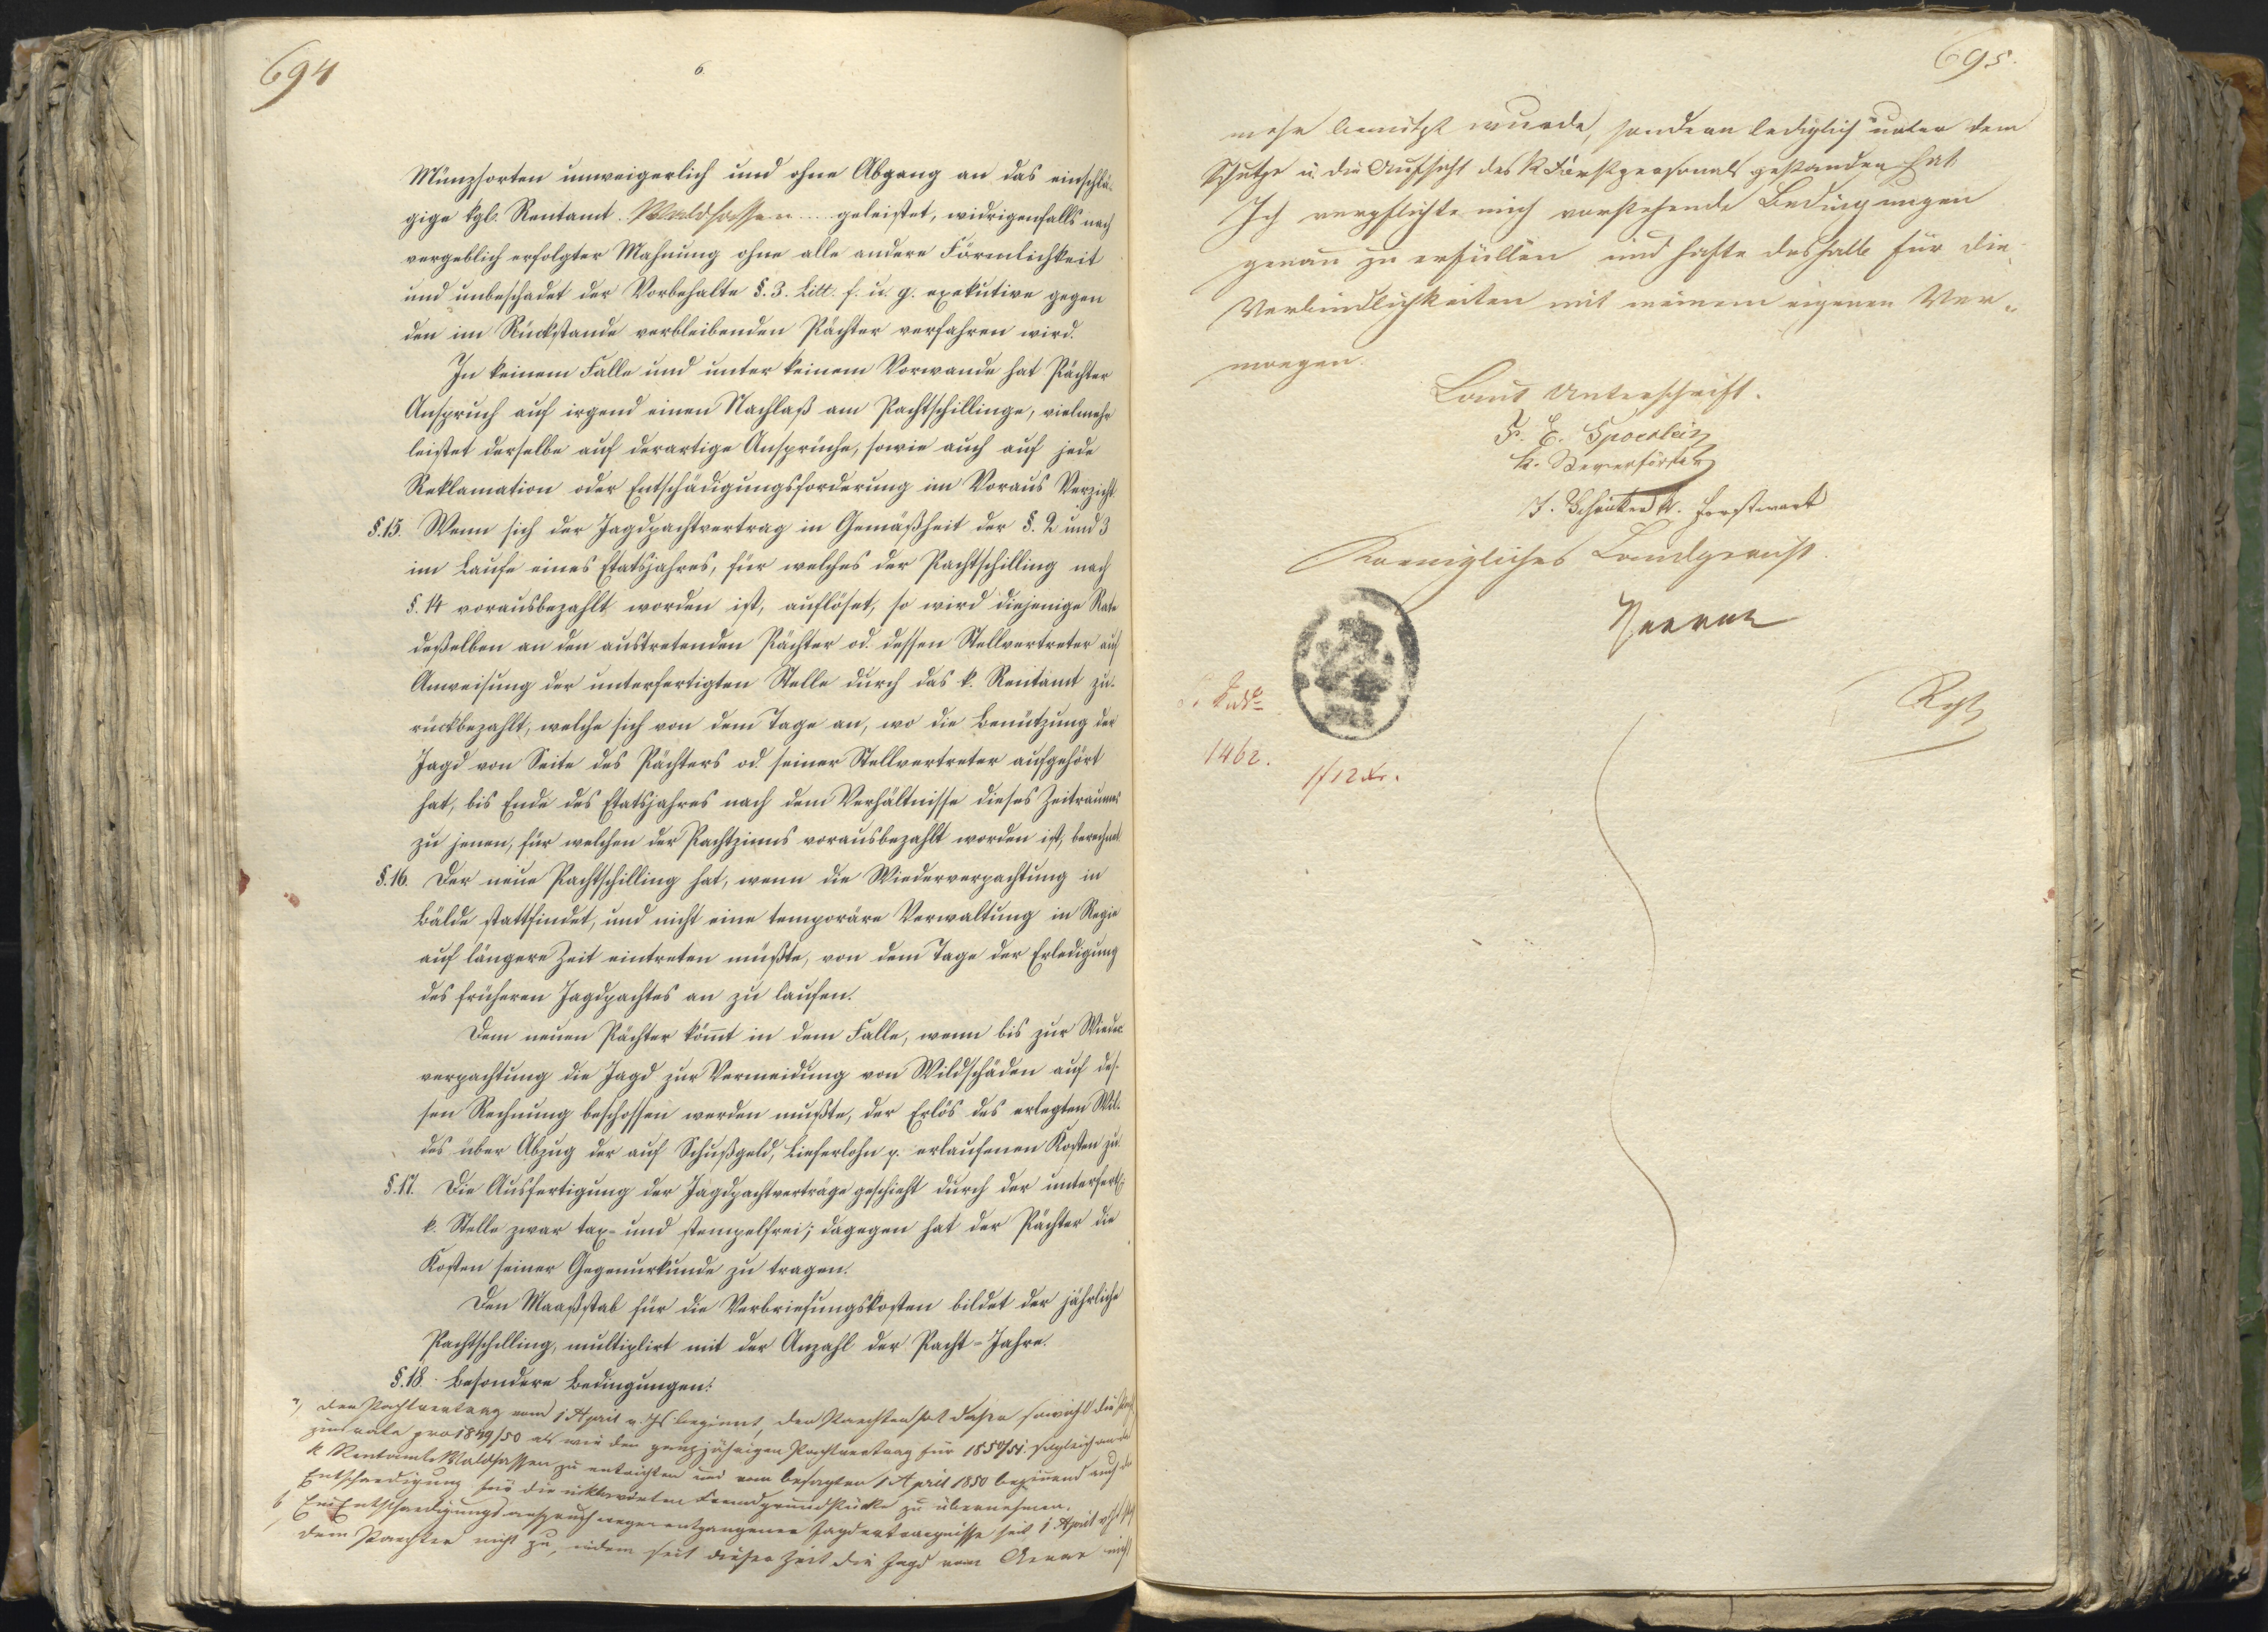 694
6
Münzsorten unweigerlich und ohne Abgang an das einschlä-
gige kgl. Rentamt Waldsassen geleistet, widrigenfalls nach
vergeblich erfolgter Mahnung ohne alle andere Förmlichkeit
und unbeschadet der Vorbehalte §. 3. Litt. f. u. g. exekutive gegen
den im Rückstande verbleibenden Pächter verfahren wird.
In keinem Falle und unter keinem Vorwande hat Pächter
Anspruch auf irgend einen Nachlaß am Pachtschillinge, vielmehr
leistet derselbe auf derartige Ansprüche, sowie auch auf jede
Reklamation oder Entschädigungsforderung im Voraus Verzicht
§. 15. Wenn sich der Jagdpachtvertrag in Gemäßheit der §. 2 und 3
im Laufe eines Etatsjahres, für welches der Pachtschilling nach
§. 14 vorausbezahlt worden ist, auflöset, so wird diejenige Rate
deßelben an den austretenden Pächter od. dessen Stellvertreter auf
Anweisung der unterfertigten Stelle durch das k. Rentamt zu-
rückbezahlt, welche sich von dem Tage an, wo die Benützung der
Jagd von Seite des Pächters od. seiner Stellvertreter aufgehört
hat, bis Ende des Etatsjahres nach dem Verhältnisse dieses Zeitraumes
zu jenen, für welchen der Pachtzinns vorausbezahlt worden ist, berechnet.
§. 16. Der neue Pachtschilling hat, wenn die Wiederverpachtung in
Bälde stattfindet, und nicht eine temporäre Verwaltung in Regie
auf längere Zeit eintreten müßte, von dem Tage der Erledigung
des früheren Jagdpachtes an zu laufen.
Dem neuen Pächter kömt in dem Falle, wenn bis zur Wieder-
verpachtung die Jagd zur Vermeidung von Wildschäden auf des-
sen Rechnung beschossen werden mußte, der Erlös des erlegten Wil-
des über Abzug der auf Schußgeld, Lieferlohn p. erlaufenen Kosten zu
§. 17. Die Ausfertigung der Jagdpachtverträge geschieht durch der unterfert.
k. Stelle zwar tax- und stempelfrei; dagegen hat der Pächter die
Kosten seiner Gegenurkunde zu tragen.
Den Maaßstab für die Verbriefungskosten bildet der jährliche
Pachtschilling, multiplirt mit der Anzahl der Pacht-Jahre.
§. 18. Besondere Bedingungen:
a, Der Pachtvertrag vom 1 April v. Js beginnt, der Paechter hat daher sowohl die Pacht
zinsrate pro 1849/50 als wie den ganzjährigen Pachtvertrag für 1850/51 sogleich an das
k Rentamte Waldsassen zu entrichten und vom besagten 1 April 1850 beginnend auch die
Entschaedigung für die inklavirten Fremdgrundstücke zu übernehmen.
b, Ein Entschaedigungsanspruch wegen entgangener Jagdertraegnisse seit 1. April v. Js
dem Paechter nicht zu, indem seit dieser Zeit die Jagd vom Aerar nicht
695.
mehr benützt wurde, sondern lediglich unter dem
Schutze u. die Aufsicht des k Forstpersonals gestanden hat.
Ich verpflichte mich vorstehende Bedingungen
genau zu erfüllen und hafte deshalb für die
Verbindlichkeiten mit meinem eigenen Ver-
moegen.
Laut Unterschrift.
F. E. Spoerlein
k. Revierförster
J. Schricker k. Forstwart
Koenigliches Landgericht.
1462.
1 f 12 xr.